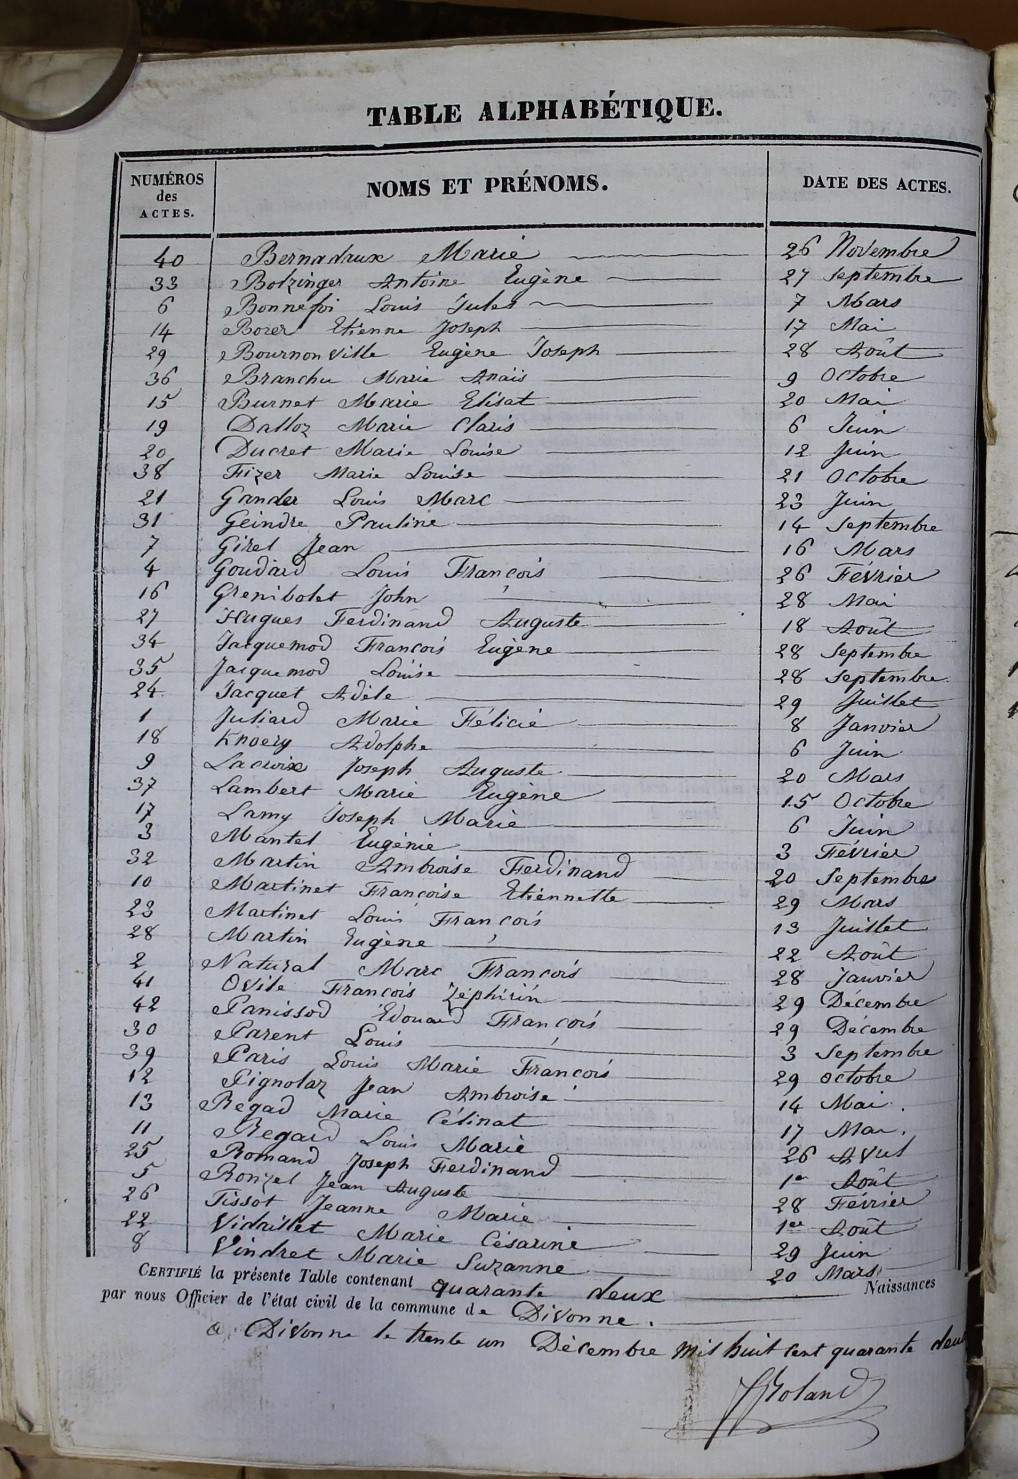 TABLE ALPHABÉTIQUE.
NUMÉROS des ACTES. NOMS ET PRÉNOMS. DATE DES ACTES.
40 Bernadrux Marie 26 Novembre
33 Botzinger Antoine Eugène 27 Septembre
6 Bonnefoi Louis Jules 7 Mars
14 Borer Etienne Joseph 17 Mai
29 Bournonville Eugène Joseph 28 Août
36 Branchu Marie Anaïs 9 Octobre
15 Burnet Marie Elisat 20 Mai
19 Dalloz Marie Claris 6 Juin
20 Ducret Marie Louise 12 Juin
38 Fizer Marie Louise 21 Octobre
21 Gander Louis Marc 23 Juin
31 Geindre Pauline 14 Septembre
7 Girel Jean 16 Mars
4 Goudard Louis François 26 Février
16 Grenibolet John 28 Mai
27 Hugues Ferdinand Auguste 18 Août
34 Jacquemod François Eugène 28 Septembre
35 Jacquemod Louise 28 Septembre
24 Jacquet Adèle 29 Juillet
1 Juliard Marie Félicie 8 Janvier
18 Knoery Adolphe 6 Juin
9 Lacroix Joseph Auguste 20 Mars
37 Lambert Marie Eugène 15 Octobre
17 Lamy Joseph Marie 6 Juin
3 Mantel Eugénie 3 Février
32 Martin Ambroise Ferdinand 20 Septembre
10 Martinet Françoise Etiennette 29 Mars
23 Martinet Louis François 13 Juillet
28 Martin Eugène 22 Août
2 Natural Marc François 28 Janvier
41 Ovise François Zéphirin 29 Décembre
42 Panissod Édouard François 29 Décembre
30 Parent Louis 3 Septembre
39 Paris Louis Marie François 29 Octobre
12 Pignolaz Jean Ambroise 14 Mai.
13 Regad Marie Célinat 17 Mai.
11 Regard Louis Marie 26 Avril
25 Romand Joseph Ferdinand 1er Août
5 Ronzel Jean Auguste 28 Février
26 Tissot Jeanne Marie 1er Août
22 Vidrillet Marie Césarine 29 Juin
8 Vindret Marie Suzanne 20 Mars
CERTIFIÉ la présente Table contenant quarante deux Naissances
par nous Officier de l'état civil de la commune de Divonne.
a Divonne le trente un Décembre mil huit cent quarante deux
Roland